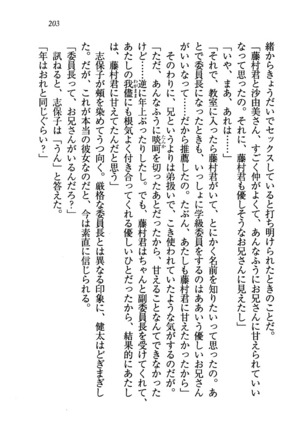 203
緒からきょうだいでセックスしていると打ち明けられたときのことだ。
「藤村君と沙由美さん、すごく仲がよくて、あんなふうにお兄さんに甘えられていいなって思ったの。それに、藤村君も優しそうなお兄さんに見えたし」
「いや、まあ、あれは……」
「それで、教室に入ったら藤村君がいて、とにかく名前を知りたいって思ったの。あたしが委員長になったときも、いっしょに学級委員をするのはああいう優しいお兄さんがいいなって……だから推薦したの。たぶん、あたしも藤村君に甘えたかったから」
それにしては、兄というよりは弟扱いで、こき使われていたような気がするのだが。
「ただ、あんなふうに啖呵を切ったあとだったから、甘えることなんてできなかったけど……逆に年上ぶったりして。でも、藤村君はちゃんと副委員長を受けてくれて、あたしの我儘にも根気よく付き合ってくれる優しいひとだったから、結果的にあたしは、藤村君に甘えてたんだと思う」
志保子が頬を染めてうつ向く。厳格な委員長とは異なる印象に、健太はどぎまぎした。だが、これが本当の彼女なのだと、今は素直に信じられる。
「委員長って、お兄さんがいるんだろ？」
訊ねると、志保子は「うん」と答えた。
「年はおれと同じぐらい？」